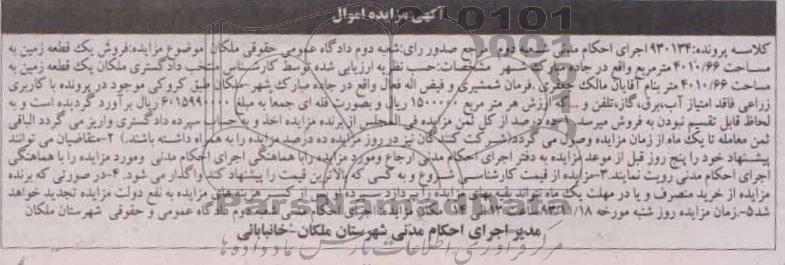 آگهی مزایده اموال
کلاسه پرونده:۹۳۰۱۳۴ اجرای احکام مدنی شعبه دوم مرجع صدور رای:شعبه دوم دادگاه عمومی حقوقی ملکان موضوع مزایده:فروش یک قطعه زمین به
مساحت ۴۰۱۰/۶۶ مترمربع واقع در جاده مبارک شهر مشخصات:حسب نظریه ارزیابی شده توسط کارشناس منتخب دادگستری ملکان یک قطعه زمین به
مساحت ۴۰۱۰/۶۶ متر بنام آقایان مالک جعفری ،فرمان شمشیری و فیض اله فعال واقع در جاده مبارک شهر ملکان طبق کروکی موجود در پرونده با کاربری
زراعی فاقد امتیاز آب،برق،گاز،تلفن و ...که ارزش هر متر مربع ۱۵۰۰۰۰۰ ریال و بصورت قله ای جمعا به مبلغ ۶۰۱۵۹۹۰۰۰۰ ریال برآورد گردیده است و به
لحاظ قابل تقسیم نبودن به فروش میرسد ده درصد از کل ثمن مزایده فی المجلس از برنده مزایده اخذ و به حساب سپرده دادگستری واریز می گردد الباقی
ثمن معامله تا یک ماه از زمان مزایده وصول می گردد(شرکت کنندگان نیز در روز مزایده ده درصد مزایده را به همراه داشته باشند.) ۲-متقاضیان می توانند
پیشنهاد خود را پنج روز قبل از موعد مزایده به دفتر اجرای احکام مدنی ارجاع ومورد مزایده رابا هماهنگی اجرای احکام مدنی ومورد مزایده را با هماهنگی
اجرای احکام مدنی رویت نمایند.۳-مزایده از قیمت کارشناسی شروع و به کسی که بالاترین قیمت را پیشنهاد کند واگذار می شود. ۴-در صورتی که برنده
مزایده از خرید منصرف و یا در مهلت یک ماه نتواند بقیه بهای مزایده را بپردازد سپرده او پس از کسر هزینه های مزایده به نفع دولت مزایده تجدید خواهد
شد۵-.زمان مزایده روز شنبه مورخه ۹۳/۱۱/۱۸ ساعت ۱۳ الی ۱۴ مکان مزایده: اجرای احکام مدنی شعبه دوم دادگاه عمومی و حقوقی شهرستان ملکان
مدیر اجرای احکام مدنی شهرستان ملکان-خانبابائی
ParsNamadData
مرکز فرآوری اطلاعات پارس نماد داده ها